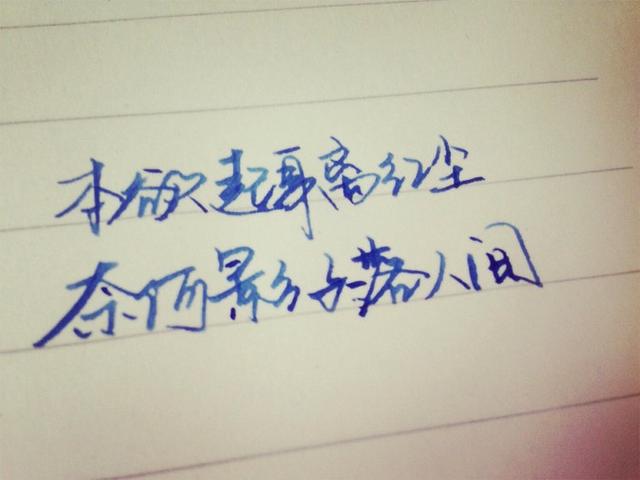 本欲起身离红尘
奈何影子落人间